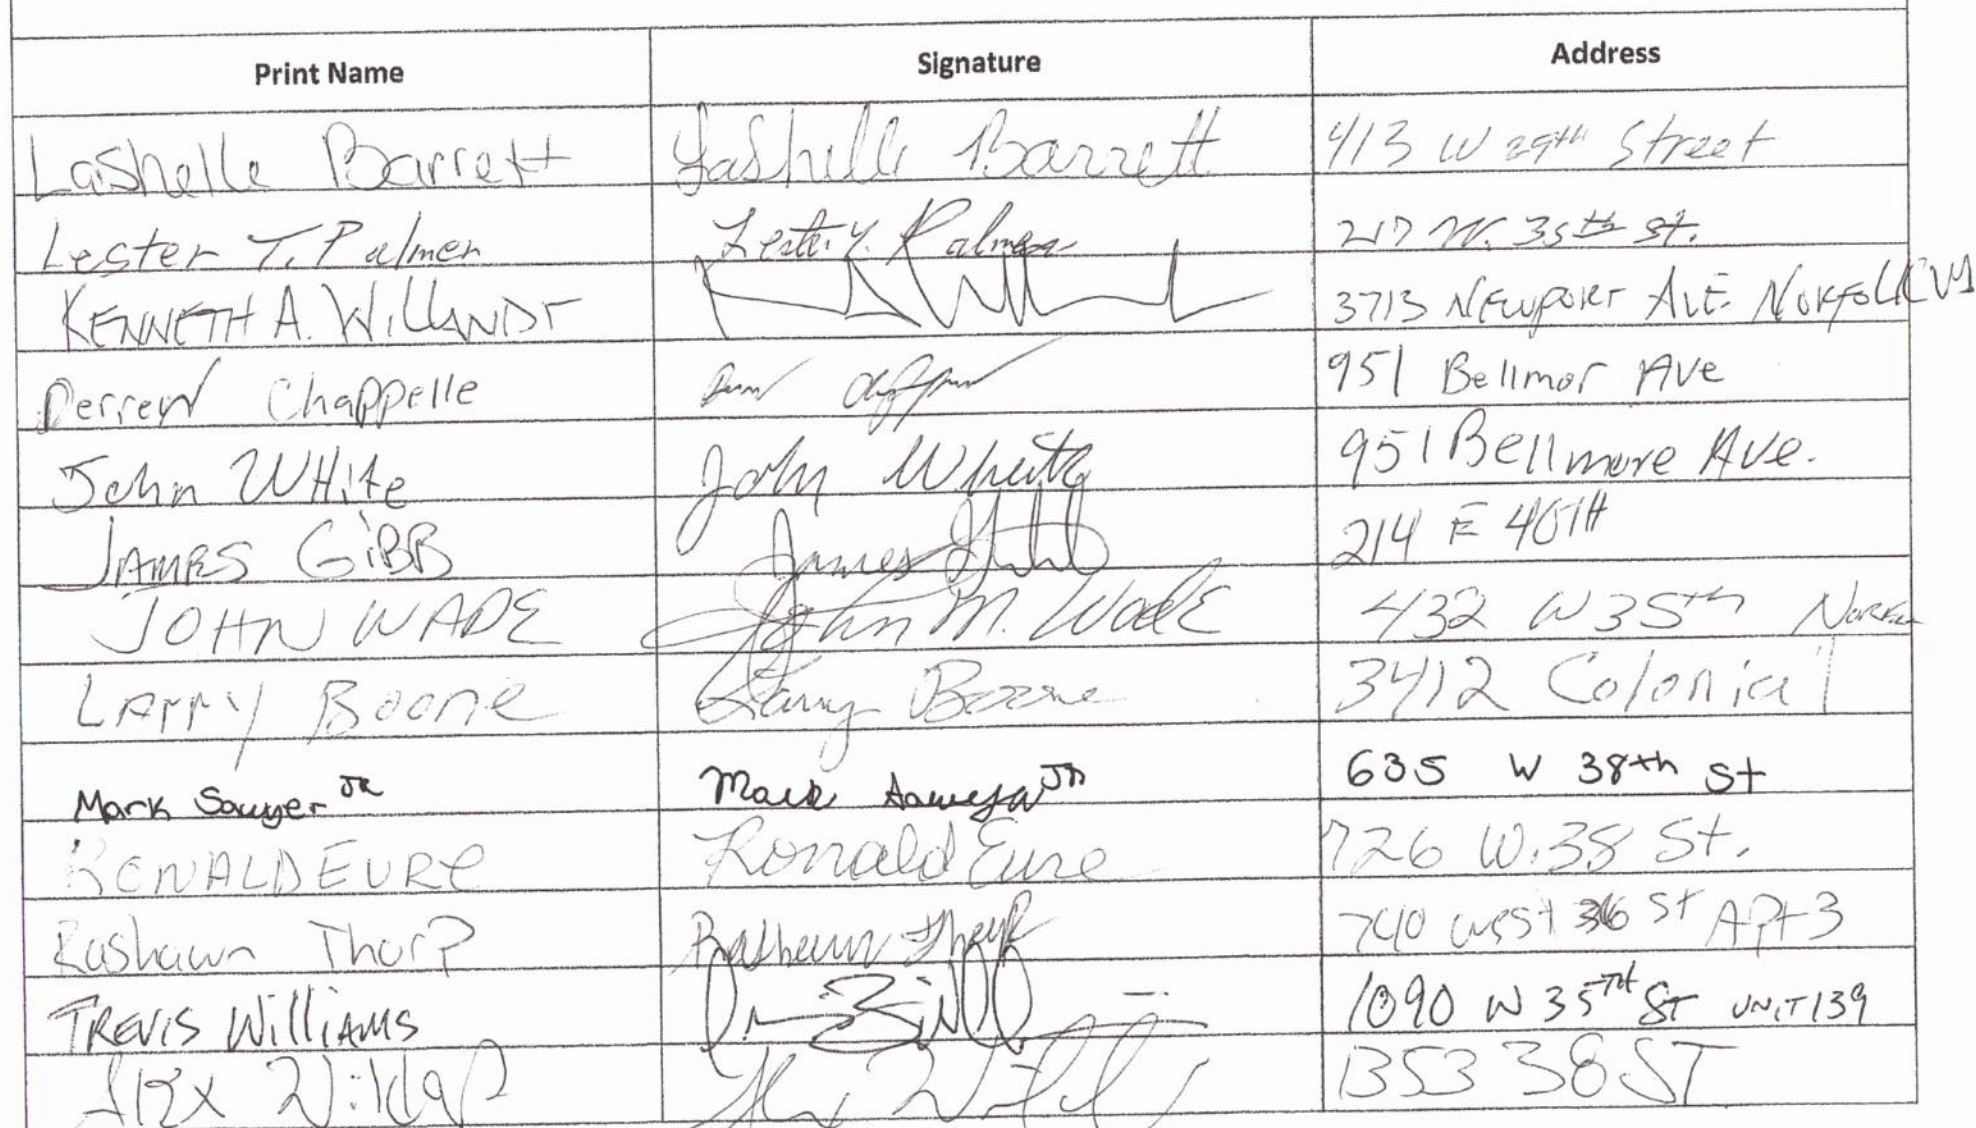 Print Name Signature Address
Lashelle Barrett Lashelle Barrett 413 W 29th Street
Lester T. Palmer Lester T. Palmer 217 W. 35th St.
KENNETH A. 3713 NEWPORT AVE. NORFOLK VA
Derren Chappelle 951 Bellmor Ave
John WHite John White 951 Bellmore Ave.
JAMES GiBB James Gibb 214 E 40TH
JOHN WADE John M. Wade 432 W 35th
LArry Boone Larry Boone 3412 Colonial
Mark Sawyer JR Mark Sawyer JR 635 W 38th St
RONALD EURE Ronald Eure 726 W. 38 St.
Rashawn Thorp Rashawn Thorp 740 west 36 St Apt 3
TREVIS WilliAMS 1090 W 35TH ST UNIT 139
1353 38 ST